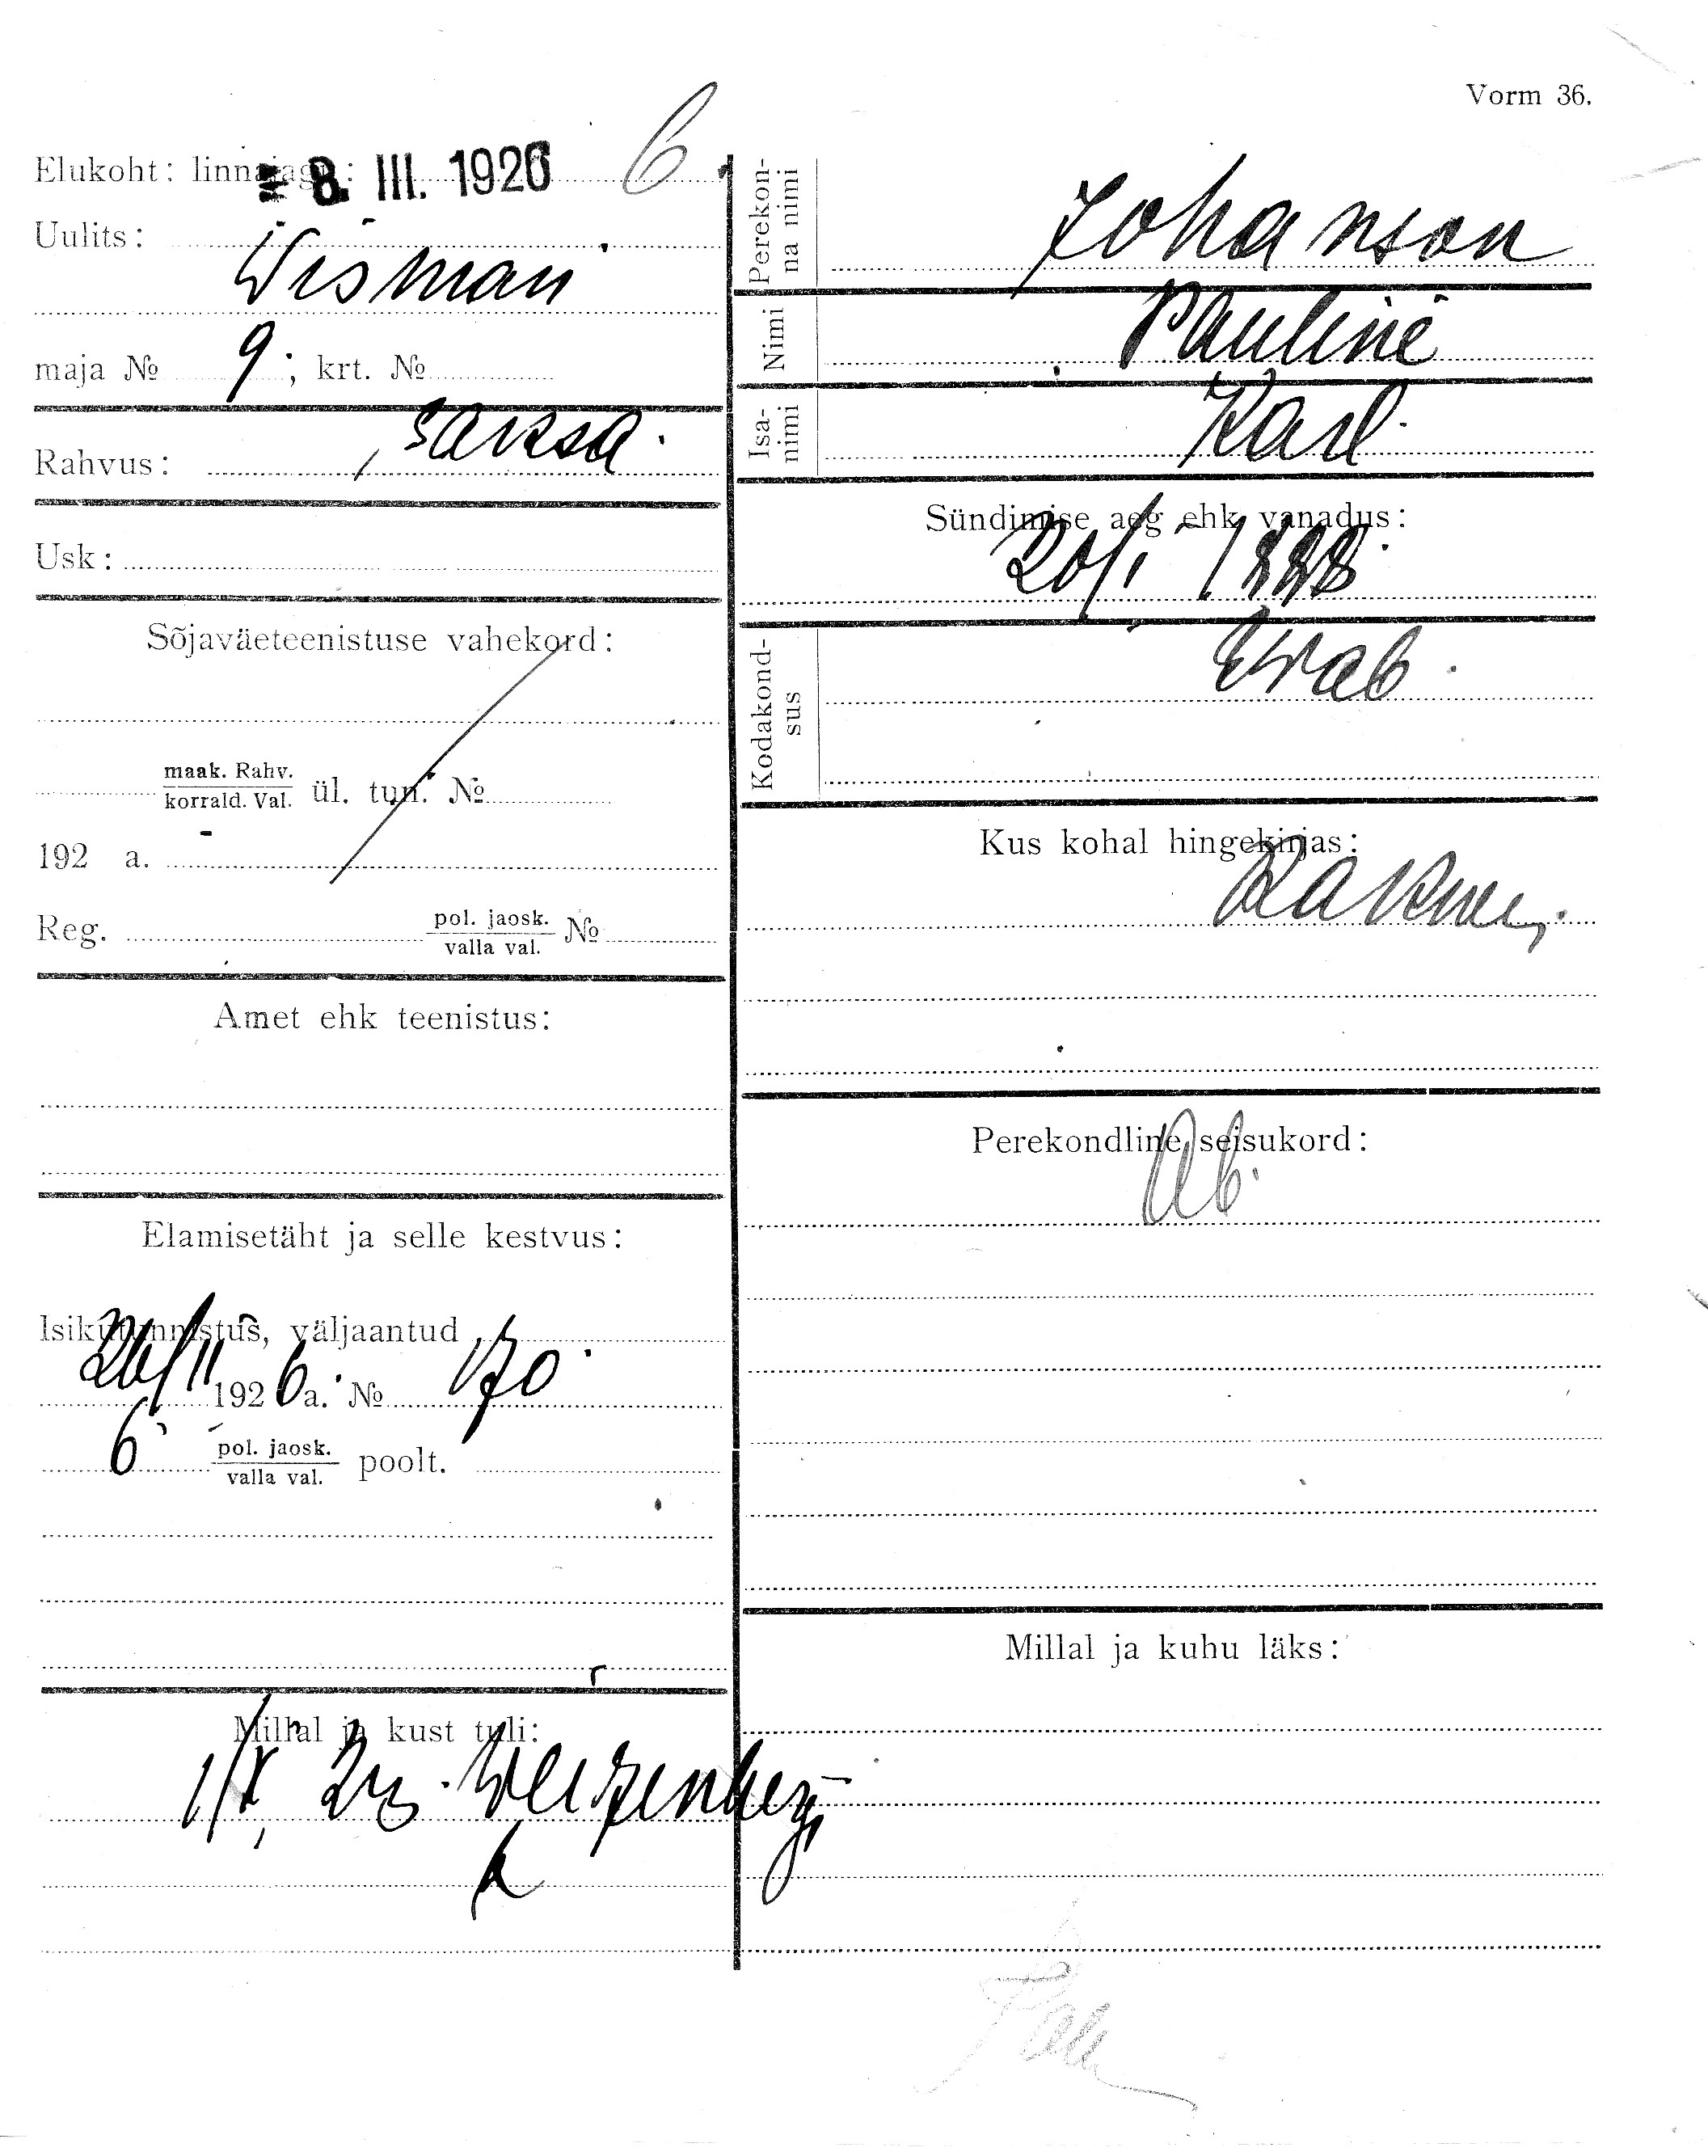 Vorm 36.
Elukoht: linnajagu: 6
8. III. 1926
Uulits:
Wismari
maja № 9; krt. №
Rahvus: saksa.
Usk:
Sõjaväeteenistuse vahekord:
maak. Rahv.
korrald. Val. ül. tun. №
192 a.
Reg. pol. jaosk.
valla val. №
Amet ehk teenistus:
Elamisetäht ja selle kestvus:
Isikutunnistus, väljaantud
26/II 1926 a. № 170
6 pol. jaosk.
valla val. poolt.
Millal ja kust tuli:
Weizenberg
Perekonna nimi Johanson
Nimi Pauline
Isanimi Karl.
Sündimise aeg ehk vanadus:
20/I 1888
Kodakondsus
Kus kohal hingekirjas:
Perekondline seisukord:
Ab.
Millal ja kuhu läks: